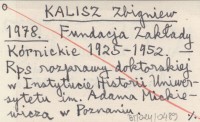 KALISZ Zbigniew
1978. Fundacja Zakłady
Kórnickie 1925-1952.
Rps rozprawy doktorskiej
w Instytucie Historii Uniwer-
sytetu im. Adama Mickie-
wicza w Poznaniu